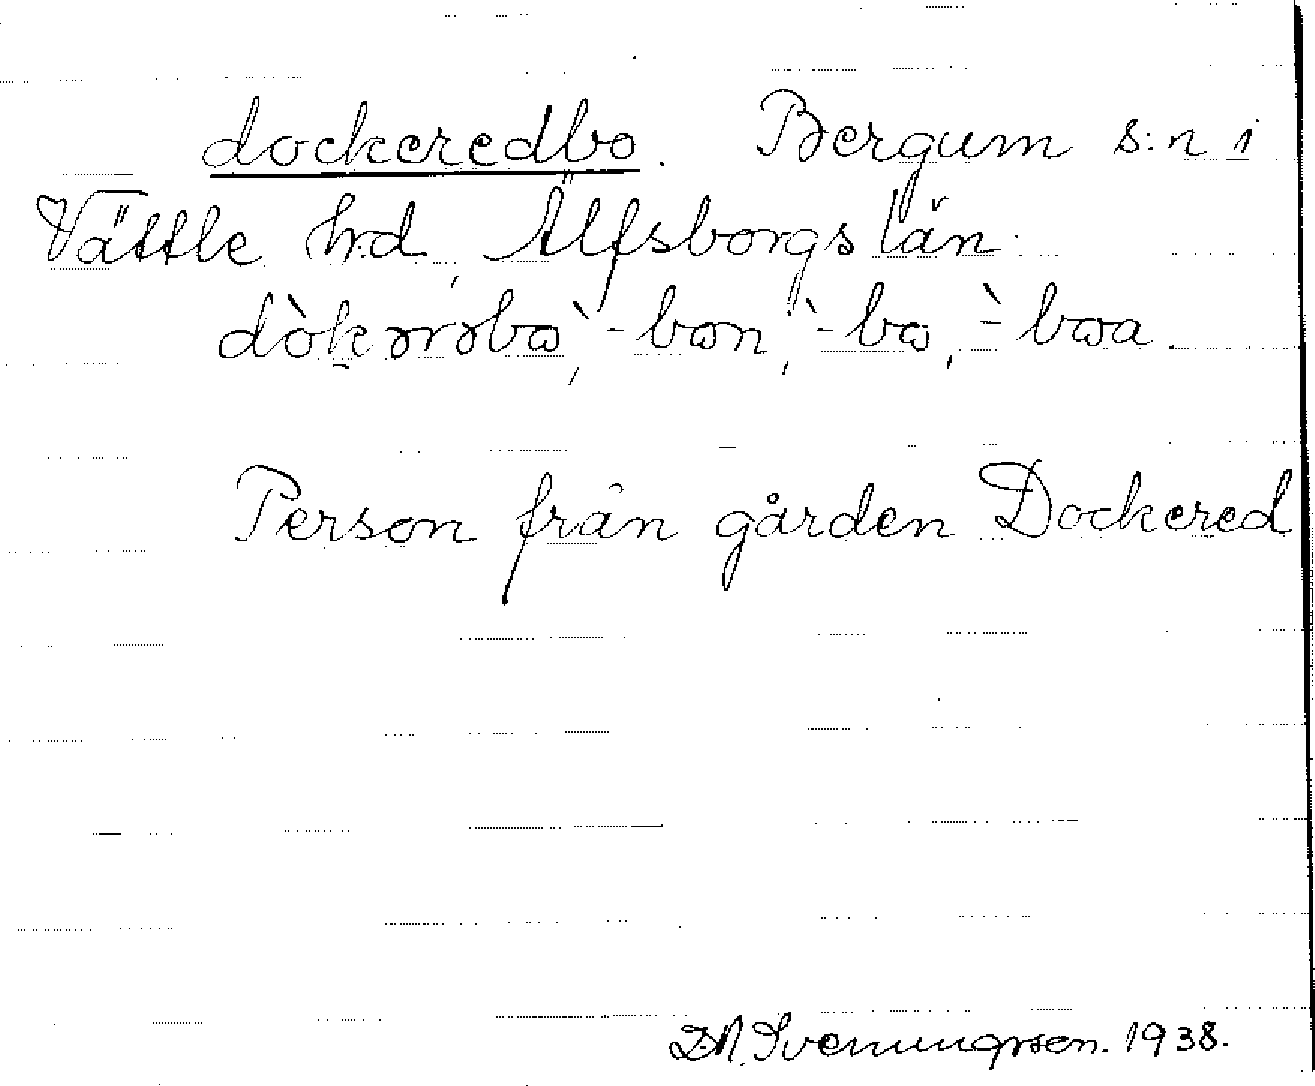 dockeredbo. Bergum s:n i
Vättle hrd, Älfsborgs län.
dòkərəbɷ̀, -bɷn, -̀bɷ, -̀bɷa
Person från gården Dockered
D.A. Svenningsson. 1938.